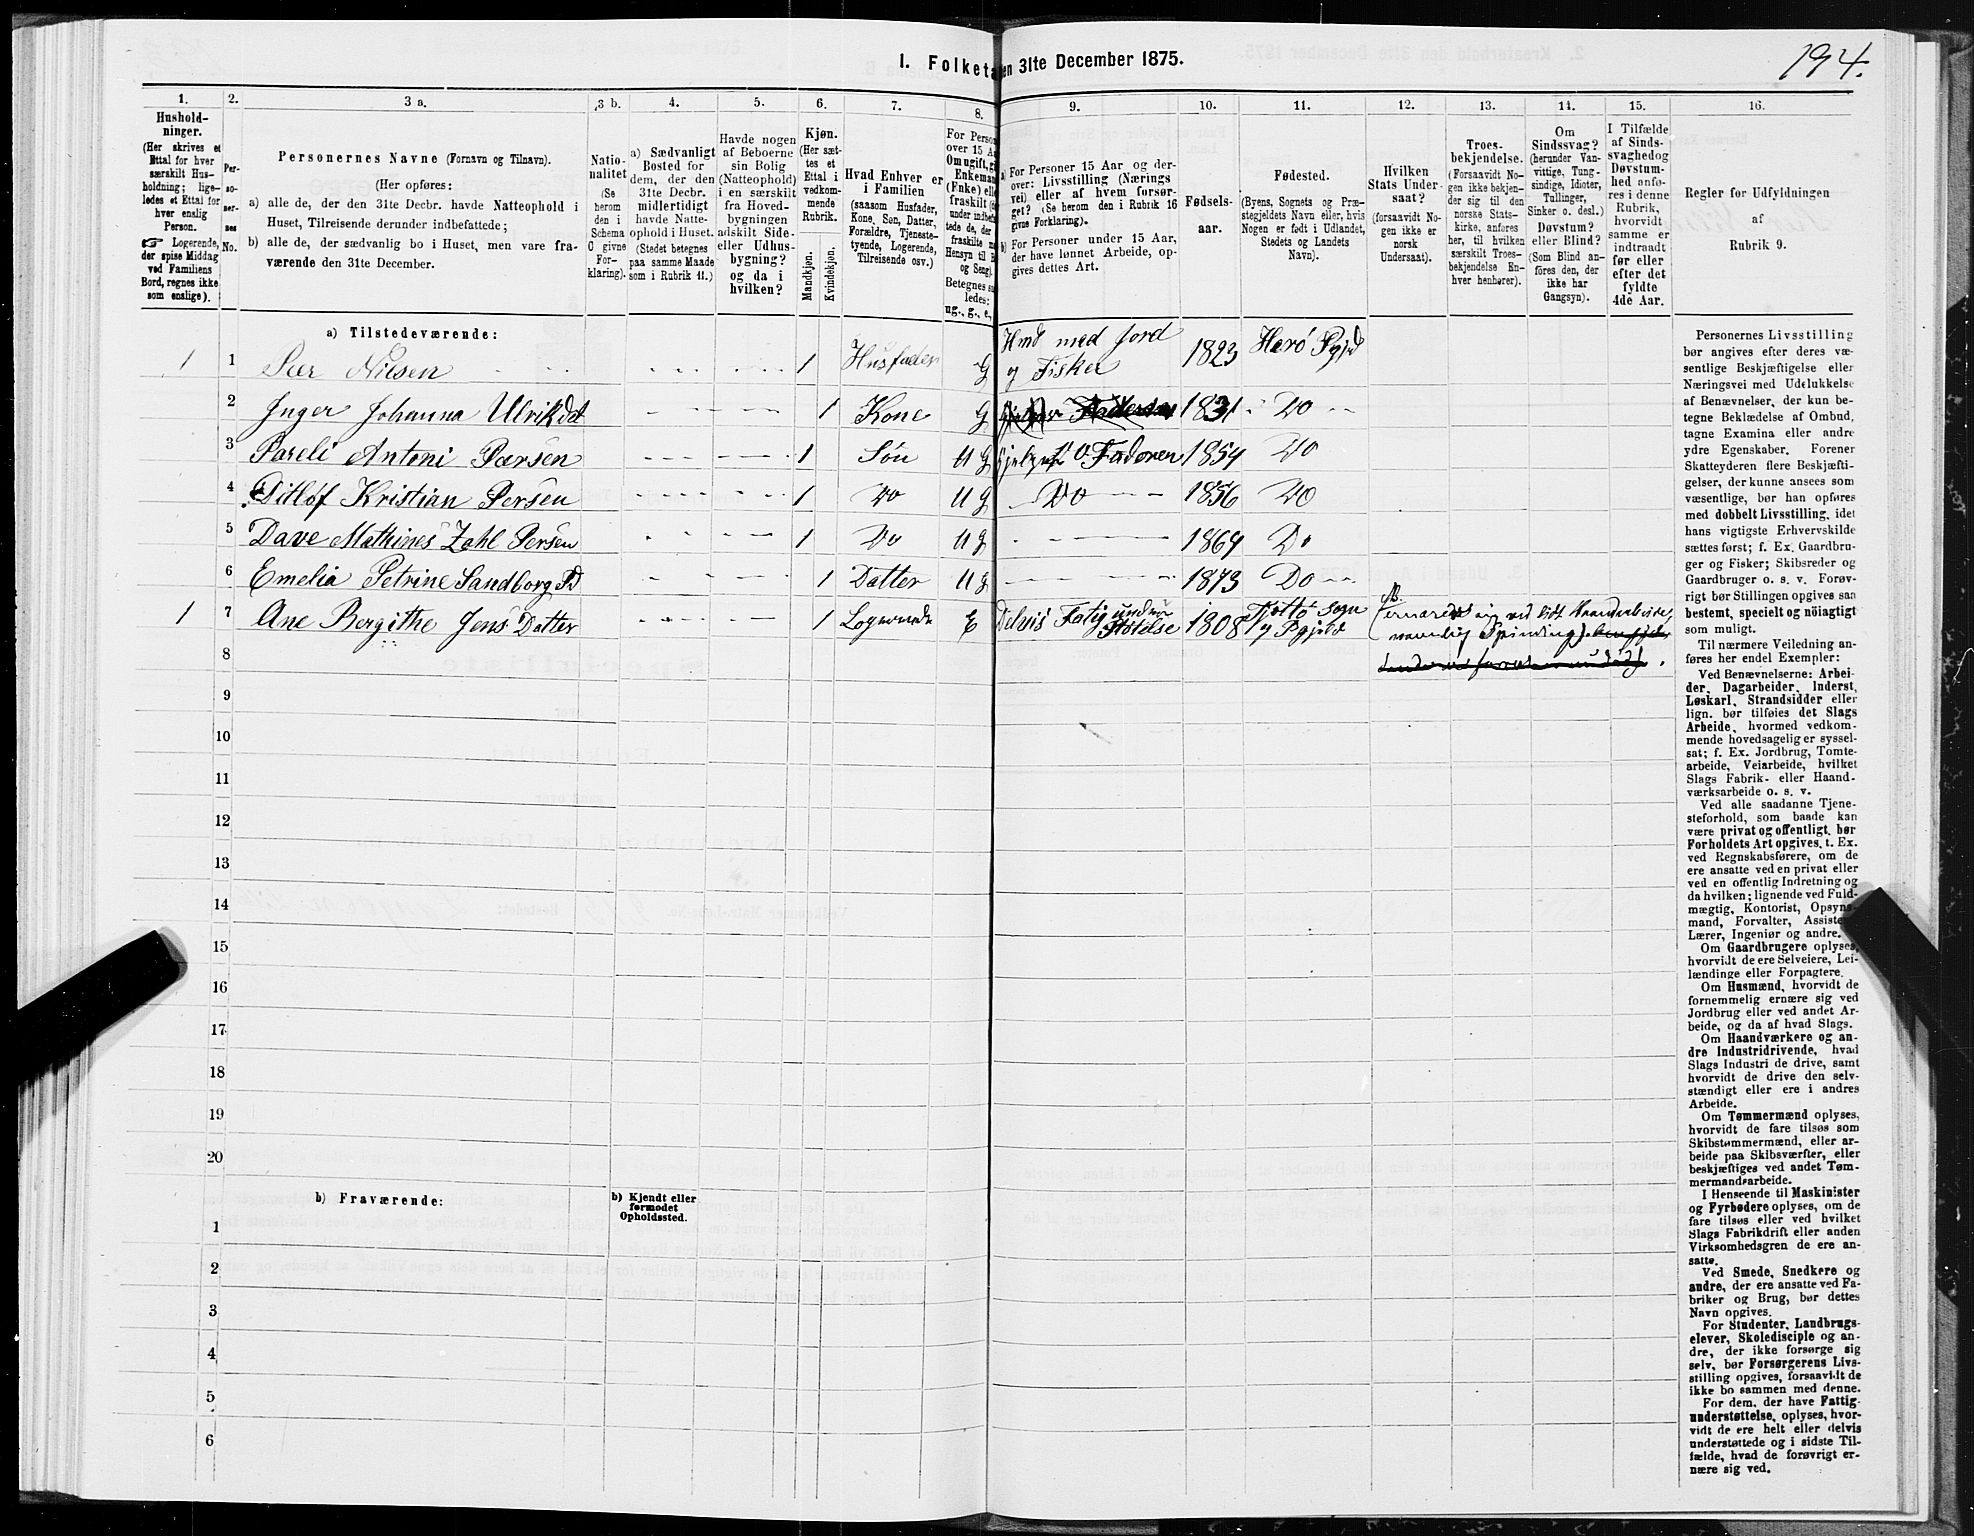 194.
I. Folketæ en 31te December 1875.
1. 2. 3 a. 3 b. 4. 5. 6. 7. 8. 9. 10. 11. 12. 13. 14. 15. 16.
Hushold-
ninger.
(Her skrives et
Ettal for hver
særskilt Hus-
holdning; lige-
ledes et Ettal for
hver enslig
Person.
☞ Logerende,
der spise Middag
ved Familiens
Bord, regnes ikke
som enslige).
Per-
so-
ner-
nes
No.
Personernes Navne (Fornavn og Tilnavn).
(Her opføres:
a) alle de, der den 31te Decbr. havde Natteophold i
Huset, Tilreisende derunder indbefattede;
b) alle de, der sædvanlig bo i Huset, men vare fra-
værende den 31te December.
Natio-
nalitet
(Se
herom
den i
Schema
C givne
For-
klaring).
a) Sædvanligt
Bosted for
dem, der den
31te Decbr.
midlertidigt
havde Natte-
ophold i Huset.
(Stedet betegnes
paa samme Maade
som i Rubrik 11.)
Havde nogen
af Beboerne
sin Bolig
(Natteophold)
i en særskilt
fra Hoved-
bygningen
adskilt Side-
eller Udhus-
bygning?
og da i
hvilken?
Kjøn.
(Her sæt-
tes et
Ettal i
vedkom-
mende
Rubrik.
Mandkjøn.
Kvindekjøn.
Hvad Enhver er
i Familien
(saasom Husfader,
Kone, Søn, Datter,
Forældre, Tjeneste-
tyende, Logerende,
Tilreisende osv.)
For Person
over 15 A
Om ugift, gi
Enkeman
(Fnke) ell
fraskilt (
under indbe
tede de, der
fraskilte m
Hensyn til B
og Seng).
Betegnes sa
ledes:
ug., g., e.,
a) For Personer 15 Aar og der-
over: Livsstilling (Nærings
vei) eller af hvem forsør-
get? (Se herom den i Rubrik 16
givne Forklaring).
b) For Personer under 15 Aar,
der have lønnet Arbeide, op-
gives dettes Art.
Fødsels-
aar.
Fødested.
(Byens, Sognets og Præ-
stegjeldets Navn eller, hvis
Nogen er født i Udlandet,
Stedets og Landets
Navn).
Hvilken
Stats Under-
saat?
(forsaavidt No-
gen ikke er
norsk
Undersaat).
Troes-
bekjendelse.
(Forsaavidt No-
gen ikke bekjen-
der sig til den
norske Stats-
kirke, anføres
her, til hvilken
særskilt Troes-
bekjendelse En-
hver henhører).
Om
Sindssvag?
(herunder Van-
vittige, Tung-
sindige, Idioter,
Tullinger,
Sinker o. desl.)
Døvstum?
eller Blind?
(Som Blind an-
føres den, der
ikke har
Gangsyn).
I Tilfælde
af Sinds-
svaghedog
Døvstum-
hed anfø-
res i denne
Rubrik,
hvorvidt
samme er
indtraadt
før eller
efter det
fyldte
4de Aar.
Regler for Udfyldningen
af
Rubrik 9.
a) Tilstedeværende:
1 1 Peer Nilsen 1 Husfader G Hmd med Jord og Fisker 1823 Herø Pgjd
2 Inger Johanna Ulrikdat 1 Kone G 1831 Do
3 Pareli Antoni Pærsen 1 Søn U G hjelper Faderen 1854 Do
4 Ditlof Kristian Persen 1 Do U G Do 1856 Do
5 Dave Mathines Zahl Persen 1 Do U g 1869 Do
6 Emelia Petrine Sandborg Pd 1 Datter U g 1873 Do
1 7 Ane Bergithe Jens Datter 1 Logerende E Delvis Fatig under Støtelse 1808 Tjøtto Sogn og Pgjeld (ernærer sig ved lidt Haandarbeide, navnlig Spinding)
8
9
10
11
12
13
14
15
16
17
18
19
20
b) Fraværende:
b) Kjendt eller
formodet
Opholdssted.
1
2
3
4
5
6
Personernes Livsstilling
bør angives efter deres væ-
sentlige Beskjæftigelse eller
Næringsvei med Udelukkelse
af Benævnelser, der kun be-
tegne Beklædelse af Ombud,
tagne Examina eller andre
ydre Egenskaber. Forener
Skatteyderen flere Beskjæfti-
gelser, der kunne ansees som
væsentlige, bør han opføres
med dobbelt Livsstilling, idet
hans vigtigste Erhvervskilde
sættes først; f. Ex. Gaardbru-
ger og Fisker; Skibsreder og
Gaardbruger o. s. v. Forøv-
rigt bør Stillingen opgives saa
bestemt, specielt og nöiagtigt
som muligt.
Til nærmere Veiledning an-
føres her endel Exempler:
Ved Benævnelserne: Arbei-
der, Dagarbeider, Inderst,
Løskarl, Strandsidder eller
lign. bør tilføies det Slags
Arbeide, hvormed vedkom-
mende hovedsagelig er syssel-
sat; f. Ex. Jordbrug, Tomte-
arbeide, Veiarbeide, hvilket
Slags Fabrik- eller Haand-
værksarbeide o. s. v.
Ved alle saadanne Tjene-
steforhold, som baade kan
være privat og offentligt, bør
Forholdets Art opgives, t. Ex.
ved Regnskabsførere, om de
ere ansatte ved en privat eller
ved en offentlig Indretning og
da hvilken; lignende ved Fuld-
mægtig, Kontorist, Opsyns-
mand, Forvalter, Assistent,
Lærer, Ingeniør og andre.
Om Gaardbrugere oplyses,
hvorvidt de ere Selveiere, Lei-
lændinge eller Forpagtere.
Om Husmænd, hvorvidt de
fornemmelig ernære sig ved
Jordbrug eller ved andet Ar-
beide, og da af hvad Slags.
Om Haandværkere og an-
dre Industridrivende, hvad
Slags Industri de drive, samt
hvorvidt de drive den selv-
stændigt eller ere i andres
Arbeide.
Om Tømmermænd oplyses,
hvorvidt de fare tilsøs som
Skibstømmermænd, eller ar-
beide paa Skibsværfter, eller
beskjæftiges ved andet Tøm-
mermandsarbeide.
I Henseende til Maskinister
og Fyrbødere oplyses, om de
fare tilsøs eller ved hvilket
Slags Fabrikdrift eller anden
Virksomhedsgren de ere an-
satte.
Ved Smede, Snedkere og
andre, der ere ansatte ved Fa-
briker og Brug, bør dettes
Navn opgives.
For Studenter, Landbrugs-
elever, Skoledisciple og an-
dre, der ikke forsørge sig
selv, bør Forsørgerens Livs-
stilling opgives, forsaavidt de
ikke bo sammen med denne.
For dem, der have Fattig-
understøttelse, oplyses, hvor-
vidt de ere helt eller delvis
understøttede og i sidste Til-
fælde, hvad de forøvrigt er-
nære sig ved.